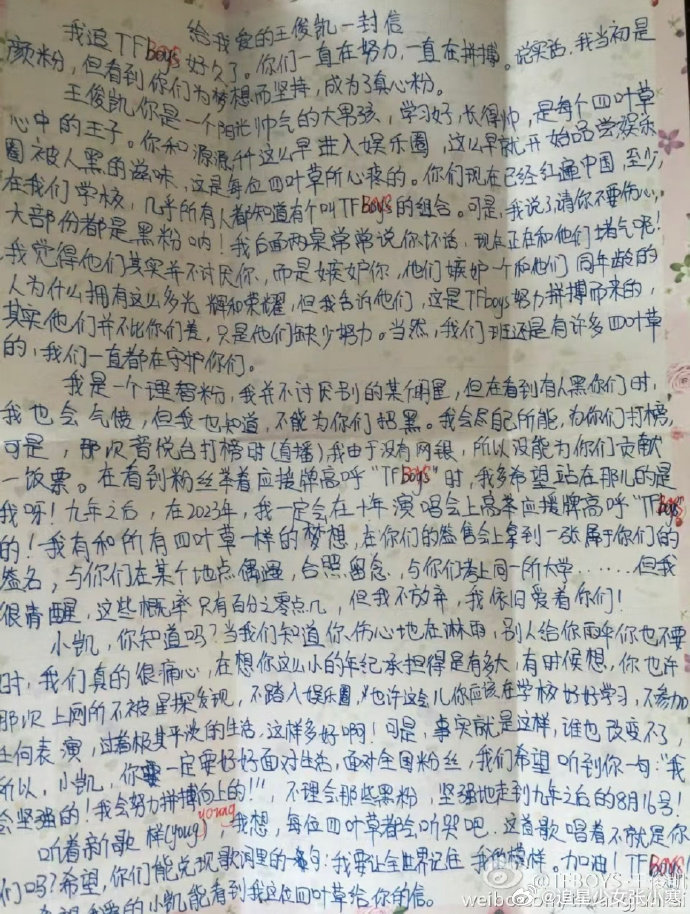 给我爱的王俊凯一封信
我追TFboys好久了。你们一直在努力,一直在拼搏。说实话,我当初是
颜粉,但看到你们为梦想而坚持,成为了真心粉。
王俊凯,你是一个阳光帅气的大男孩,学习好,长得帅,是每个四叶草
心中的王子。你和源源千这么早进入娱乐圈,这么早就开始品尝娱乐
圈被人黑的滋味,这是每位四叶草所心疼的。你们现在已经红遍中国,至少
在我们学校,几乎所有人都知道有个叫TFboys的组合。可是,我说了请你不要伤心,
大部份都是黑粉呐!我后面两桌常常说你坏话,现在正在和他们堵气呢!
我觉得他们其实并不讨厌你,而是嫉妒你,他们嫉妒一个和他们同年龄的
人为什么拥有这么多光辉和荣耀,但我告诉他们,这是TFboys努力拼搏而来的,
其实他们并不比你们差,只是他们缺少努力。当然,我们班还是有许多四叶草
的,我们一直都在守护你们。
我是一个理智粉,我并不讨厌别的某个明星,但在看到有人黑你们时,
我也会气愤,但我也知道,不能为你们招黑。我会尽自己所能,为你们打榜,
可是,那次音悦台打榜时(直播)我由于没有网银,所以没能为你们贡献
一饭票。在看到粉丝举着应援牌高呼"TFBOYS"时,我多希望站在那儿的是
我呀!九年之后,在2023年,我一定会在十年演唱会上高举应援牌高呼"TFBOYS"
的!我有和所有四叶草一样的梦想,在你们的签售会上拿到一张属于你们的
签名,与你们在某个地点偶遇,合照留念,与你们考上同一所大学……但我
很清醒,这些概率只有百分之零点几,但我不放弃,我依旧爱着你们!
小凯,你知道吗?当我们知道你伤心地在淋雨,别人给你雨伞你也不要
时,我们真的很痛心,在想你这么小的年纪承担得是有多大,有时候想,你也许
那次上网所不被星探发现,不踏入娱乐圈,也许这会儿你应该在学校好好学习,不参加
任何表演,过着极其平淡的生活,这样多好啊!可是,事实就是这样,谁也改变不了,
所以,小凯,你一定要好好面对生活,面对全国粉丝,我们希望听到你一句:"我
会坚强的!我会努力拼搏向上的!!!,不理会那些黑粉,坚强地走到九年之后的8月16号!
听着新歌 样(young) young,我想,每位四叶草都会听哭吧,这首歌唱着不就是你
们吗?希望,你们能兑现歌词里的一句:我要让全世界记住我的模样。加油!TFBOYS
我爱的小凯能看到我这位四叶草给你的信。